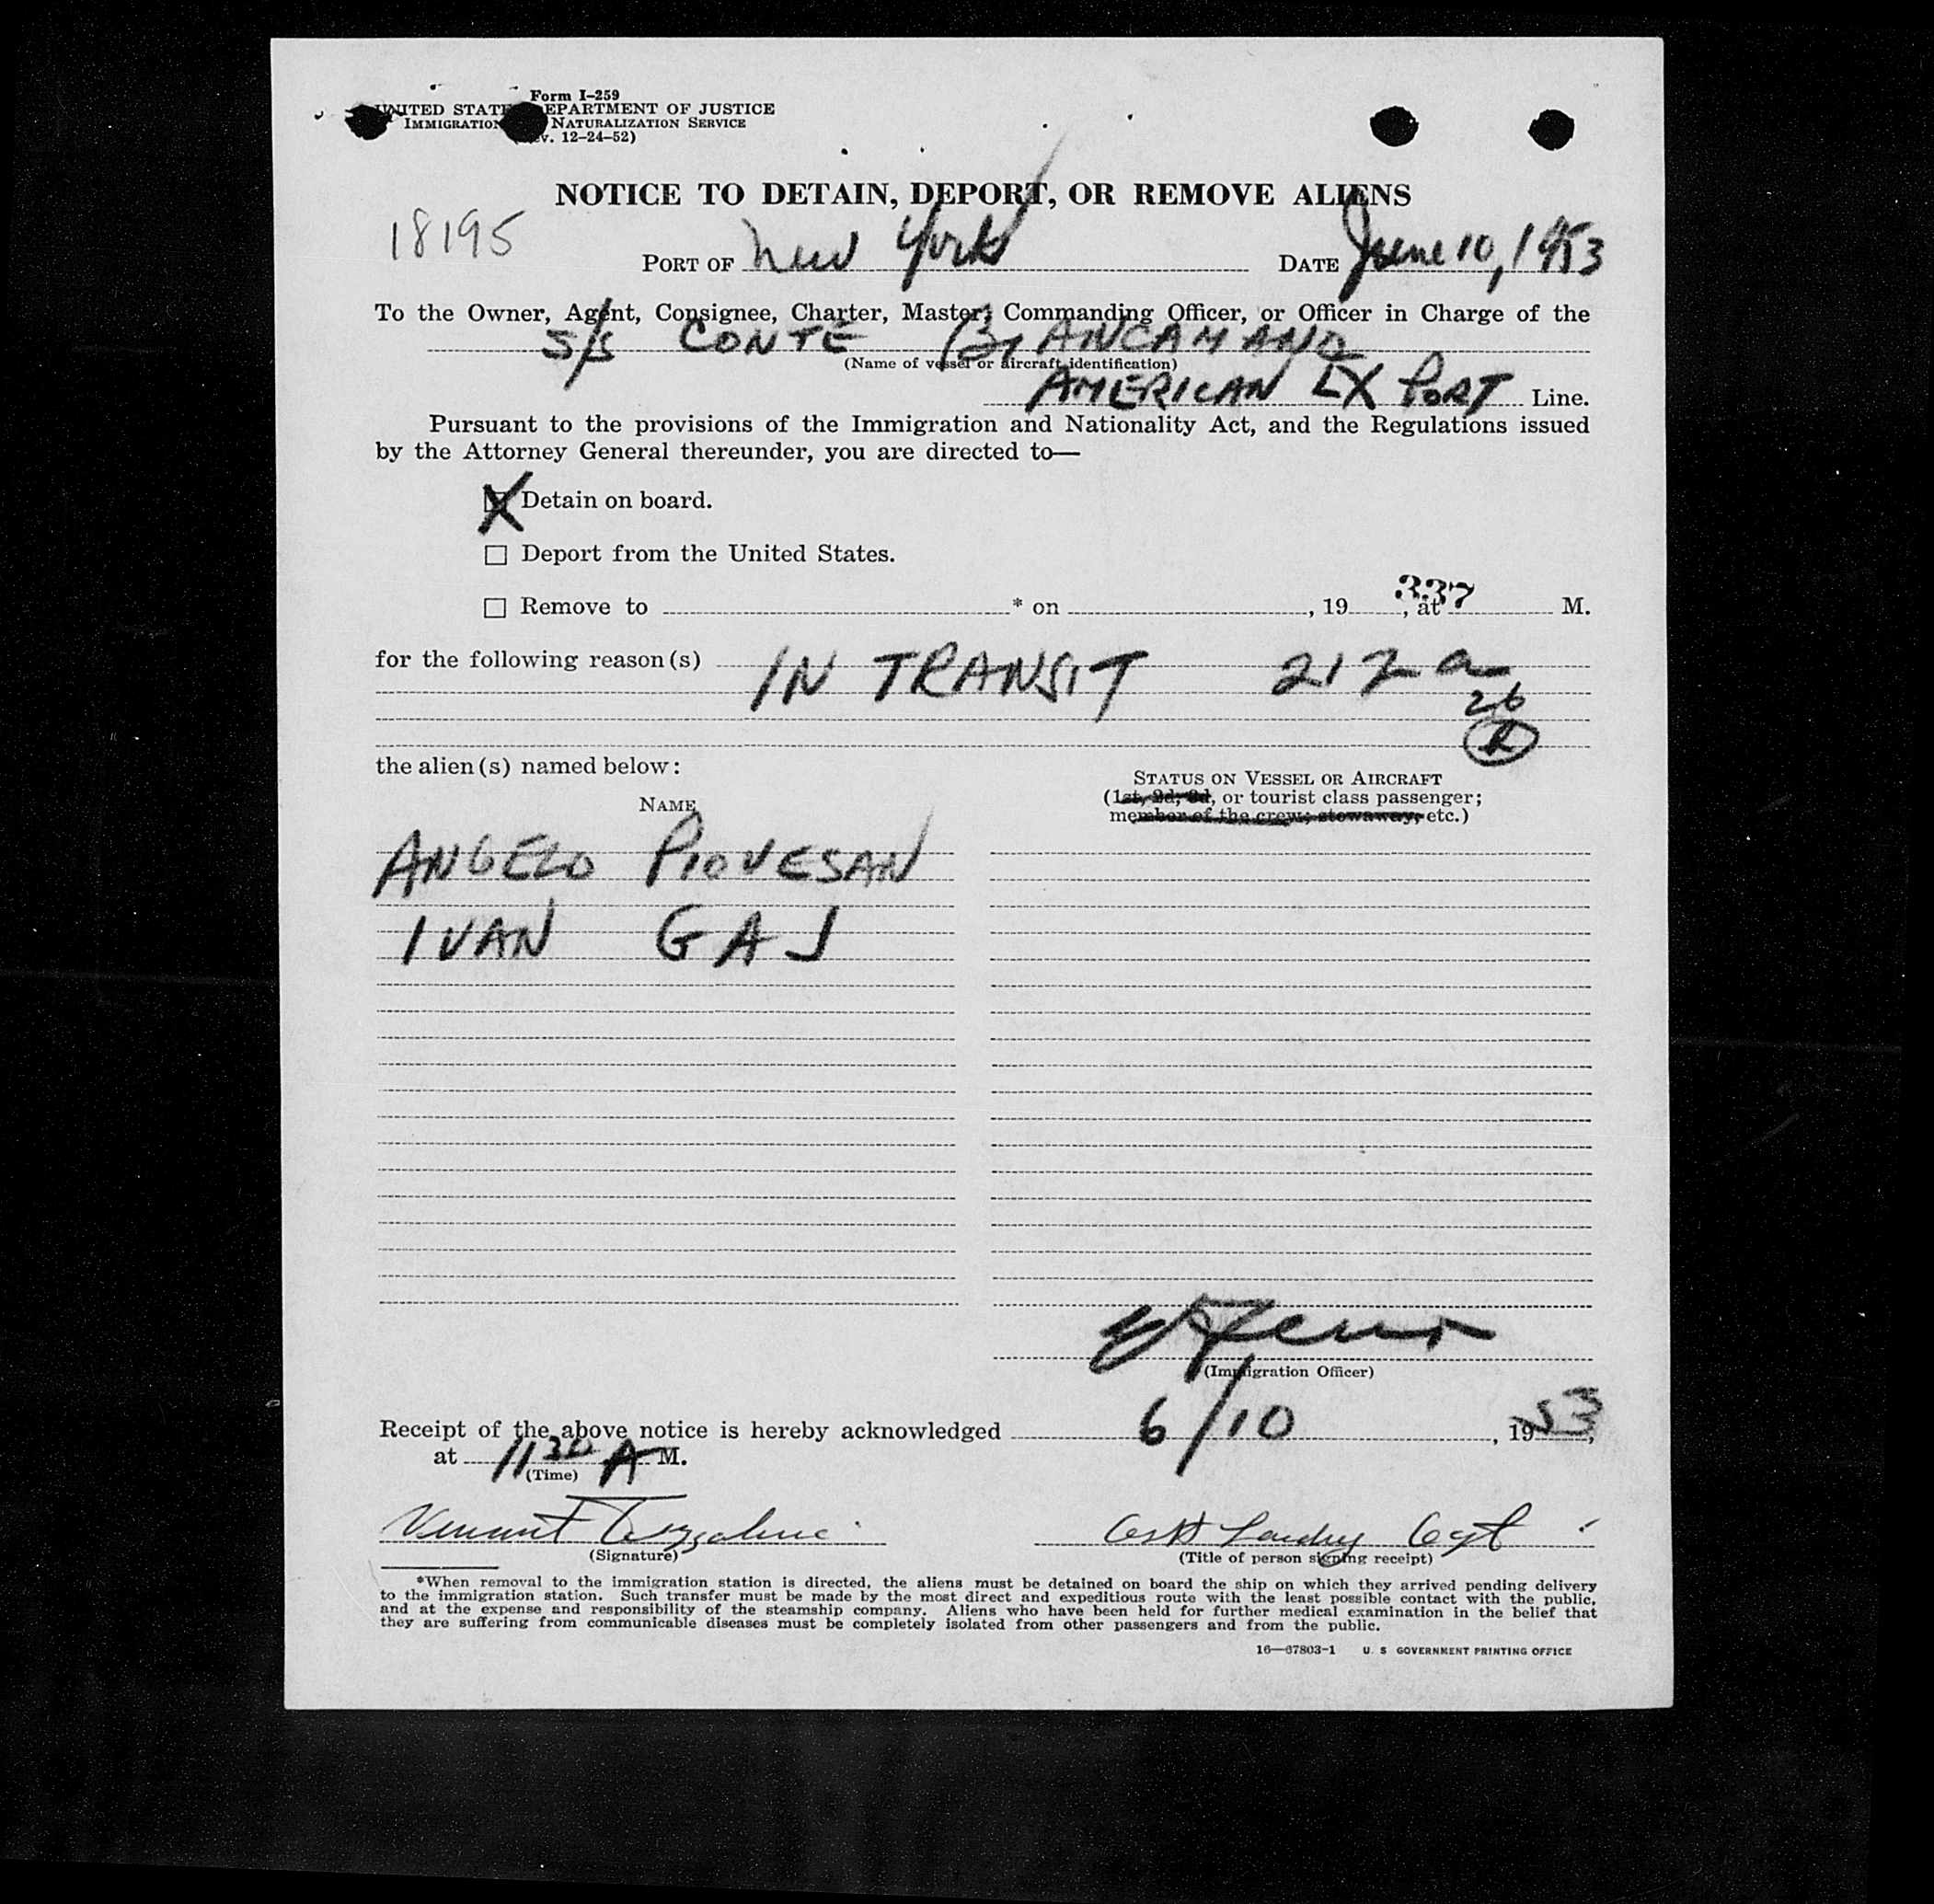 Form I-259
UNITED STATES DEPARTMENT OF JUSTICE
IMMIGRATION NATURALIZATION SERVICE
v. 12-24-52)
NOTICE TO DETAIN, DEPORT, OR REMOVE ALIENS
18195
PORT OF New York DATE June 10, 1953
To the Owner, Agent, Consignee, Charter, Master, Commanding Officer, or Officer in Charge of the
S/S CONTE BIANCAMANO
(Name of vessel or aircraft identification)
AMERICAN EXPORT Line.
Pursuant to the provisions of the Immigration and Nationality Act, and the Regulations issued
by the Attorney General thereunder, you are directed to—
X Detain on board.
☐ Deport from the United States.
337
☐ Remove to * on , 19 , at M.
for the following reason(s) IN TRANSIT 212 a
26
the alien(s) named below:
STATUS ON VESSEL OR AIRCRAFT
NAME
(1st, 2d, 3d, or tourist class passenger;
member of the crew; stowaway, etc.)
ANGELO PIOVESAN
IVAN GAJ
(Immigration Officer)
Receipt of the above notice is hereby acknowledged 6/10, 1953,
at 1130 A M.
(Time)
Capt
(Signature)
(Title of person signing receipt)
*When removal to the immigration station is directed, the aliens must be detained on board the ship on which they arrived pending delivery
to the immigration station. Such transfer must be made by the most direct and expeditious route with the least possible contact with the public,
and at the expense and responsibility of the steamship company. Aliens who have been held for further medical examination in the belief that
they are suffering from communicable diseases must be completely isolated from other passengers and from the public.
16—67803-1 U. S GOVERNMENT PRINTING OFFICE